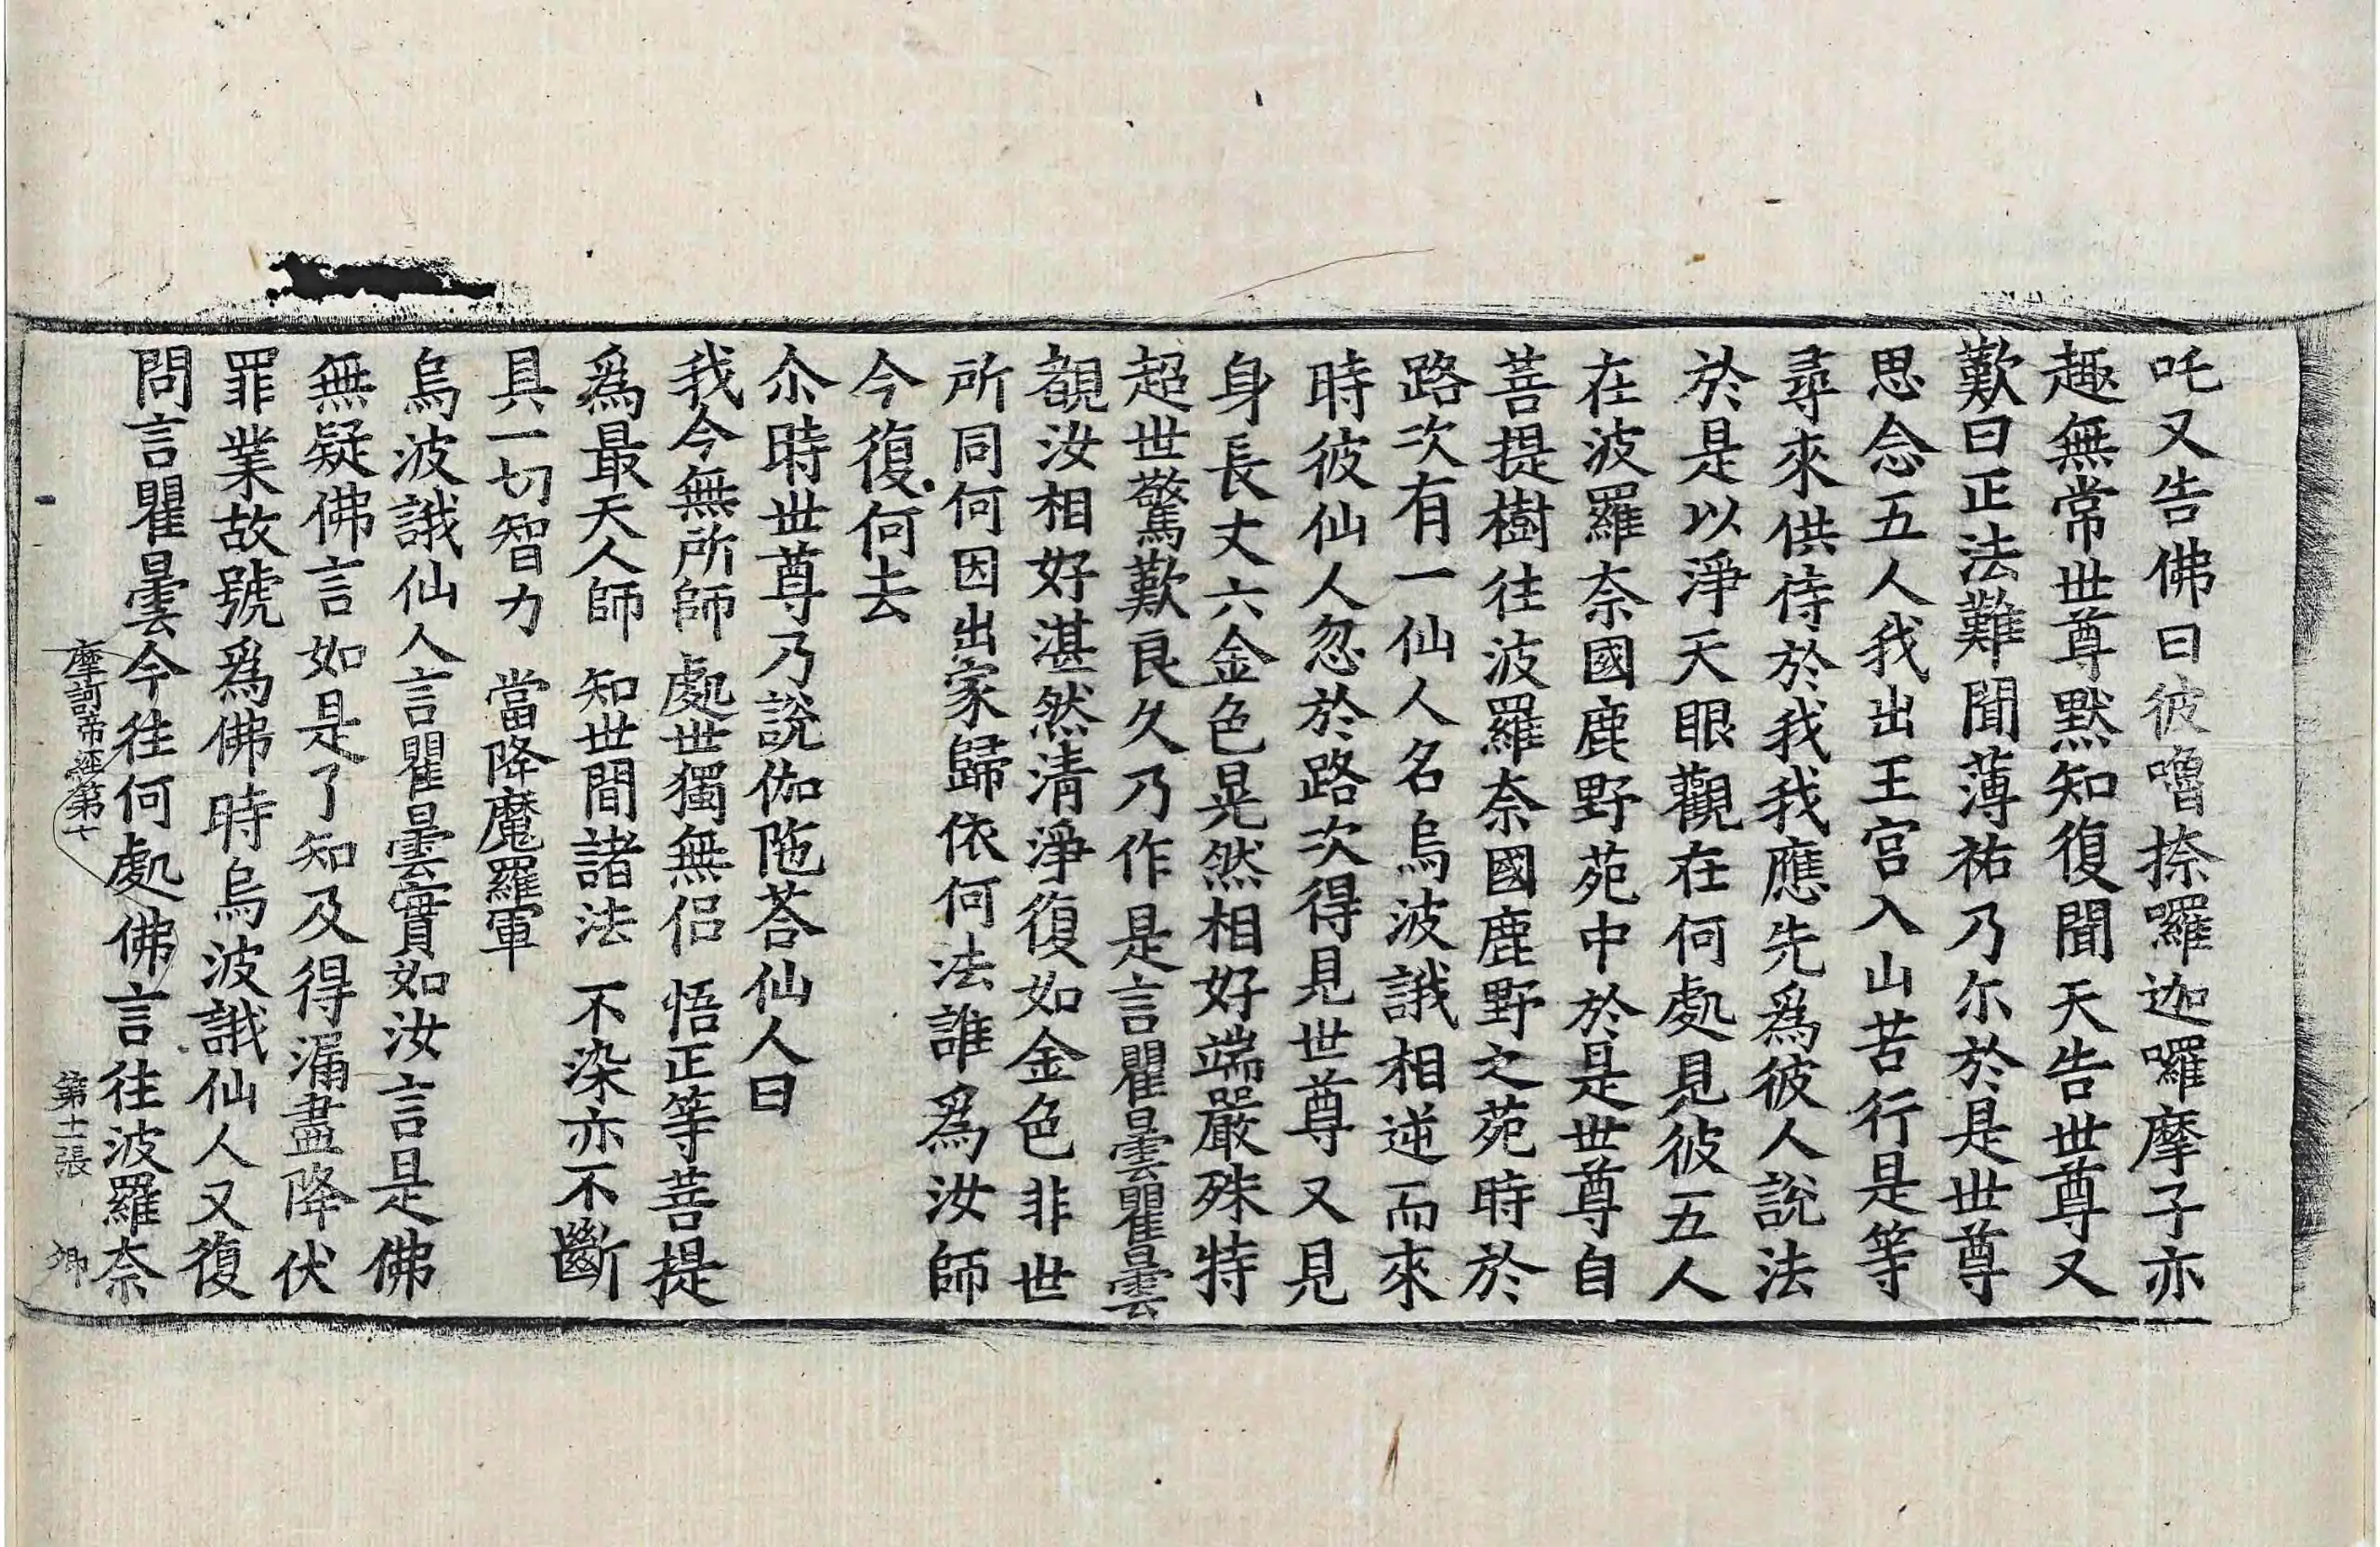 吒又告佛曰彼嚕捺囉迦囉摩子亦
趣無常世尊默知復聞天告世尊又
歎曰正法難聞薄祐乃尓於是世尊
思念五人我出王宮入山苦行是等
尋來供侍於我我應先爲彼人說法
於是以淨天眼觀在何處見彼五人
在波羅奈國鹿野苑中於是世尊自
菩提樹往波羅奈國鹿野之苑時於
路次有一仙人名烏波誐相逆而來
時彼仙人忽於路次得見世尊又見
身長丈六金色晃然相好端嚴殊特
超世驚歎良久乃作是言瞿曇瞿曇
覩汝相好湛然清淨復如金色非世
所同何因出家歸依何法誰爲汝師
今復何去
尒時世尊乃說伽陁荅仙人曰
我今無所師 處世獨無侶 悟正等菩提
爲最天人師 知世間諸法 不染亦不斷
具一切智力 當降魔羅軍
烏波誐仙人言瞿曇實如汝言是佛
無疑佛言如是了知及得漏盡降伏
罪業故號爲佛時烏波誐仙人又復
問言瞿曇今往何處佛言往波羅奈
摩訶帝經第七 第十一張 卿